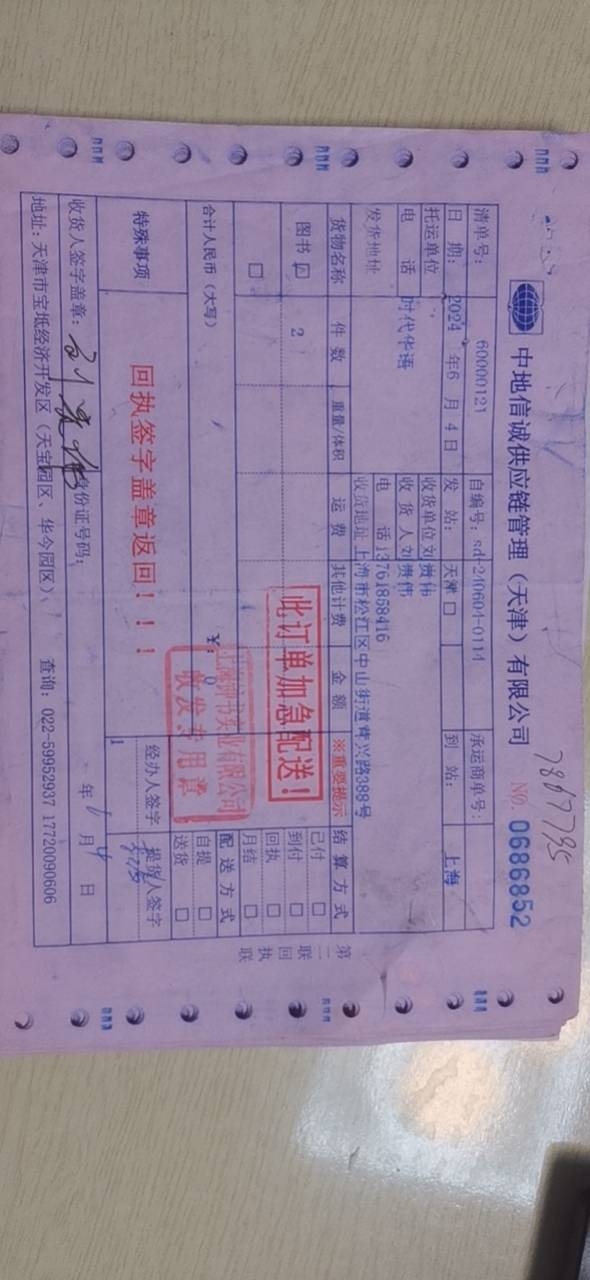 中地信诚供应链管理（天津）有限公司
NO. 0686852
7867795
清单号： 60000121 自编号：sd-240604-0114 承运商单号：
日 期：2024 年6 月 4 日 发 站： 天津 □ 到 站： 上海
托运单位 时代华语 收货单位 刘贵伟
电 话 收 货 人 刘贵伟
电 话 13761858416
发货地址 收货地址 上海市松江区中山街道茸兴路388号
货物名称 件 数 重量/体积 运 费 其他计费 金 额 ※重要提示 结 算 方 式
图书 ☑ 2
□
此订单加急配送！
已付 □
到付 □
回执 □
月结 □
合计人民币（大写） ￥: 0
配 送 方 式
自提 □
送货 □
收发专用章
特殊事项 回执签字盖章返回！！！
经办人签字 提货人签字
1
收货人签字盖章： 身份证号码： 年 6 月 4 日
地址：天津市宝坻经济开发区（天宝园区、华今园区）、 查询：022-59952937 17720090606
第二联 回执联